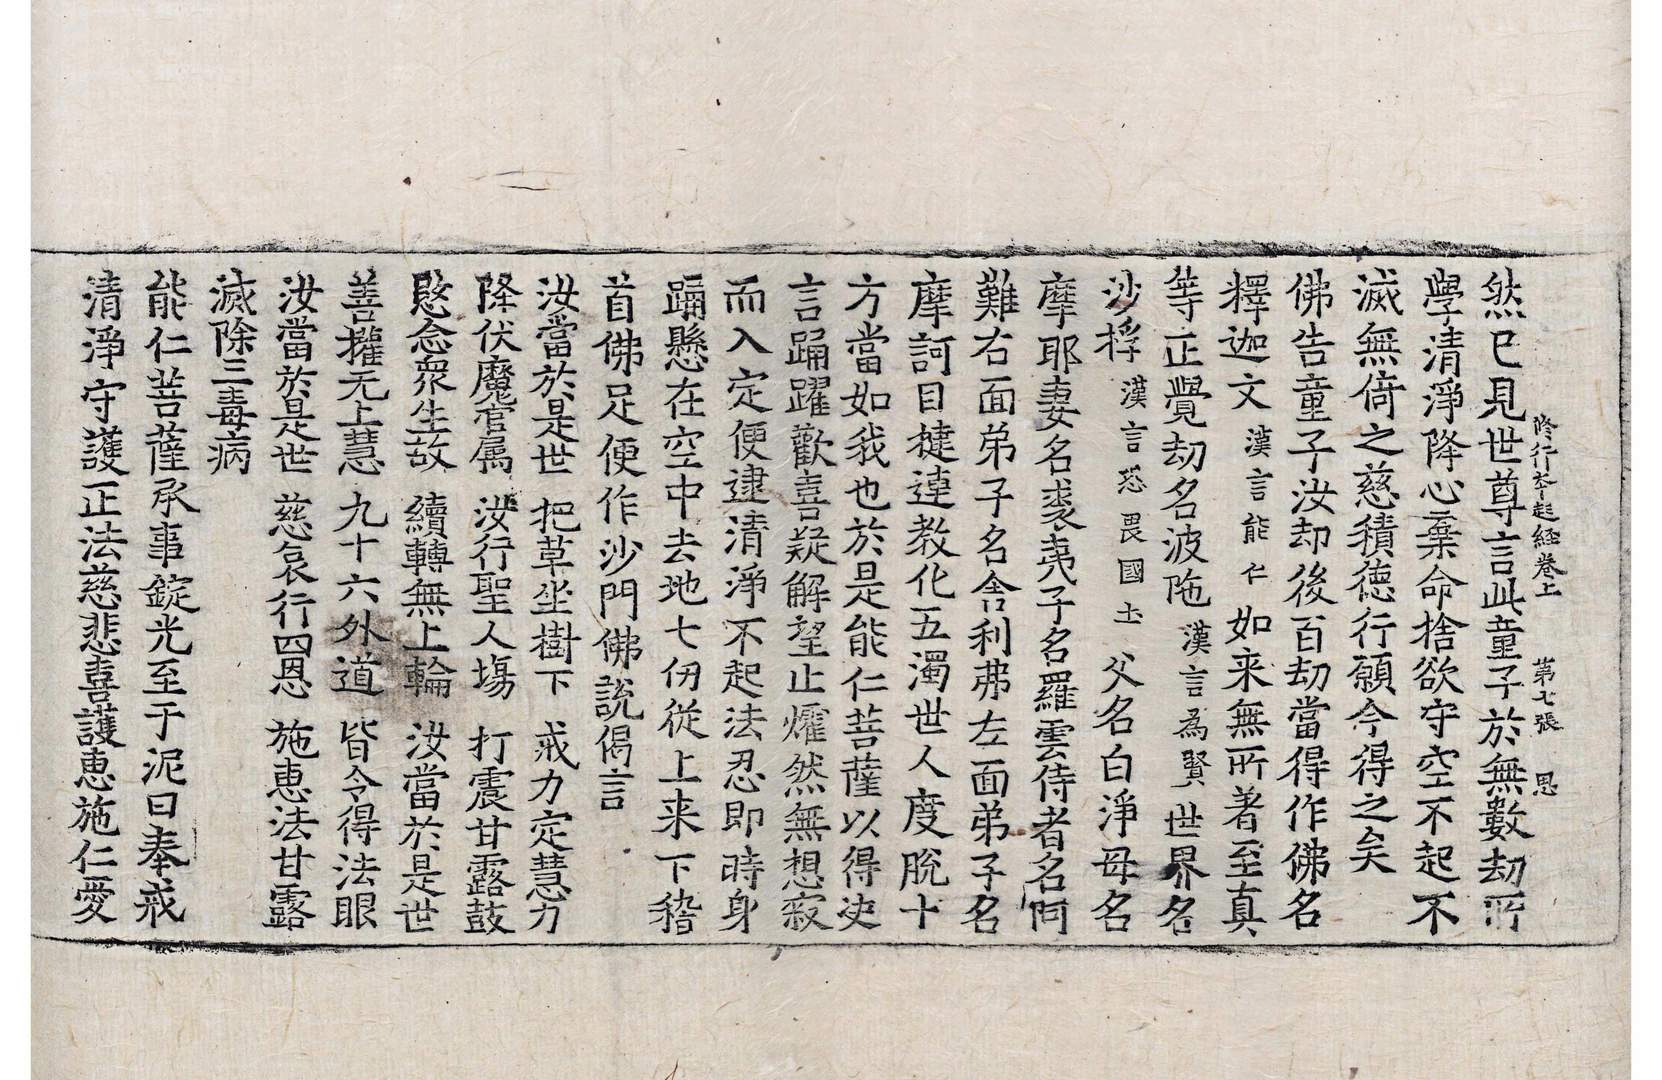 修行本起經卷上 第七張 思
然已見世尊言此童子於無數劫所
學清淨降心棄命捨欲守空不起不
滅無倚之慈積德行願今得之矣
佛告童子汝却後百劫當得作佛名
釋迦文漢言能仁如来無所著至真
等正覺劫名波陁漢言為賢世界名
沙桴漢言恐畏國土父名白淨母名
摩耶妻名裘夷子名羅雲侍者名阿
難右面弟子名舍利弗左面弟子名
摩訶目揵連教化五濁世人度脫十
方當如我也於是能仁菩薩以得決
言踊躍歡喜疑解望止㸌然無想寂
而入定便逮清淨不起法忍即時身
踊懸在空中去地七仞從上来下稽
首佛足便作沙門佛說偈言
汝當於是世 把草坐樹下 戒力定慧力
降伏魔官属 汝行聖人場 打震甘露鼓
愍念衆生故 續轉無上輪 汝當於是世
善權无上慧 九十六外道 皆令得法眼
汝當於是世 慈哀行四恩 施惠法甘露
滅除三毒病
能仁菩薩承事錠光至于泥曰奉戒
清淨守護正法慈悲喜護惠施仁愛